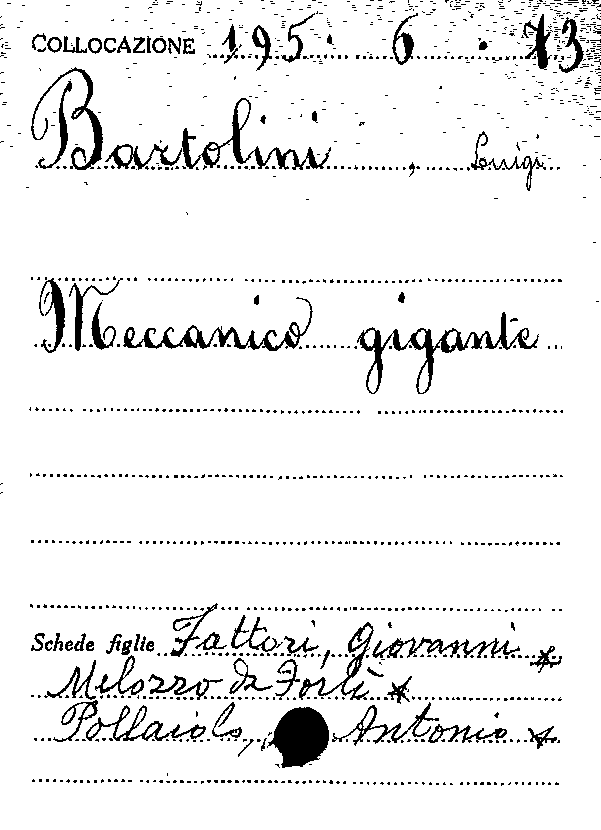 COLLOCAZIONE 195. 6. 13
Bartolini, Luigi
Meccanico gigante
Schede figlie Fattori, Giovanni *
Melozzo da Forlì *
Pollaiolo, Antonio *